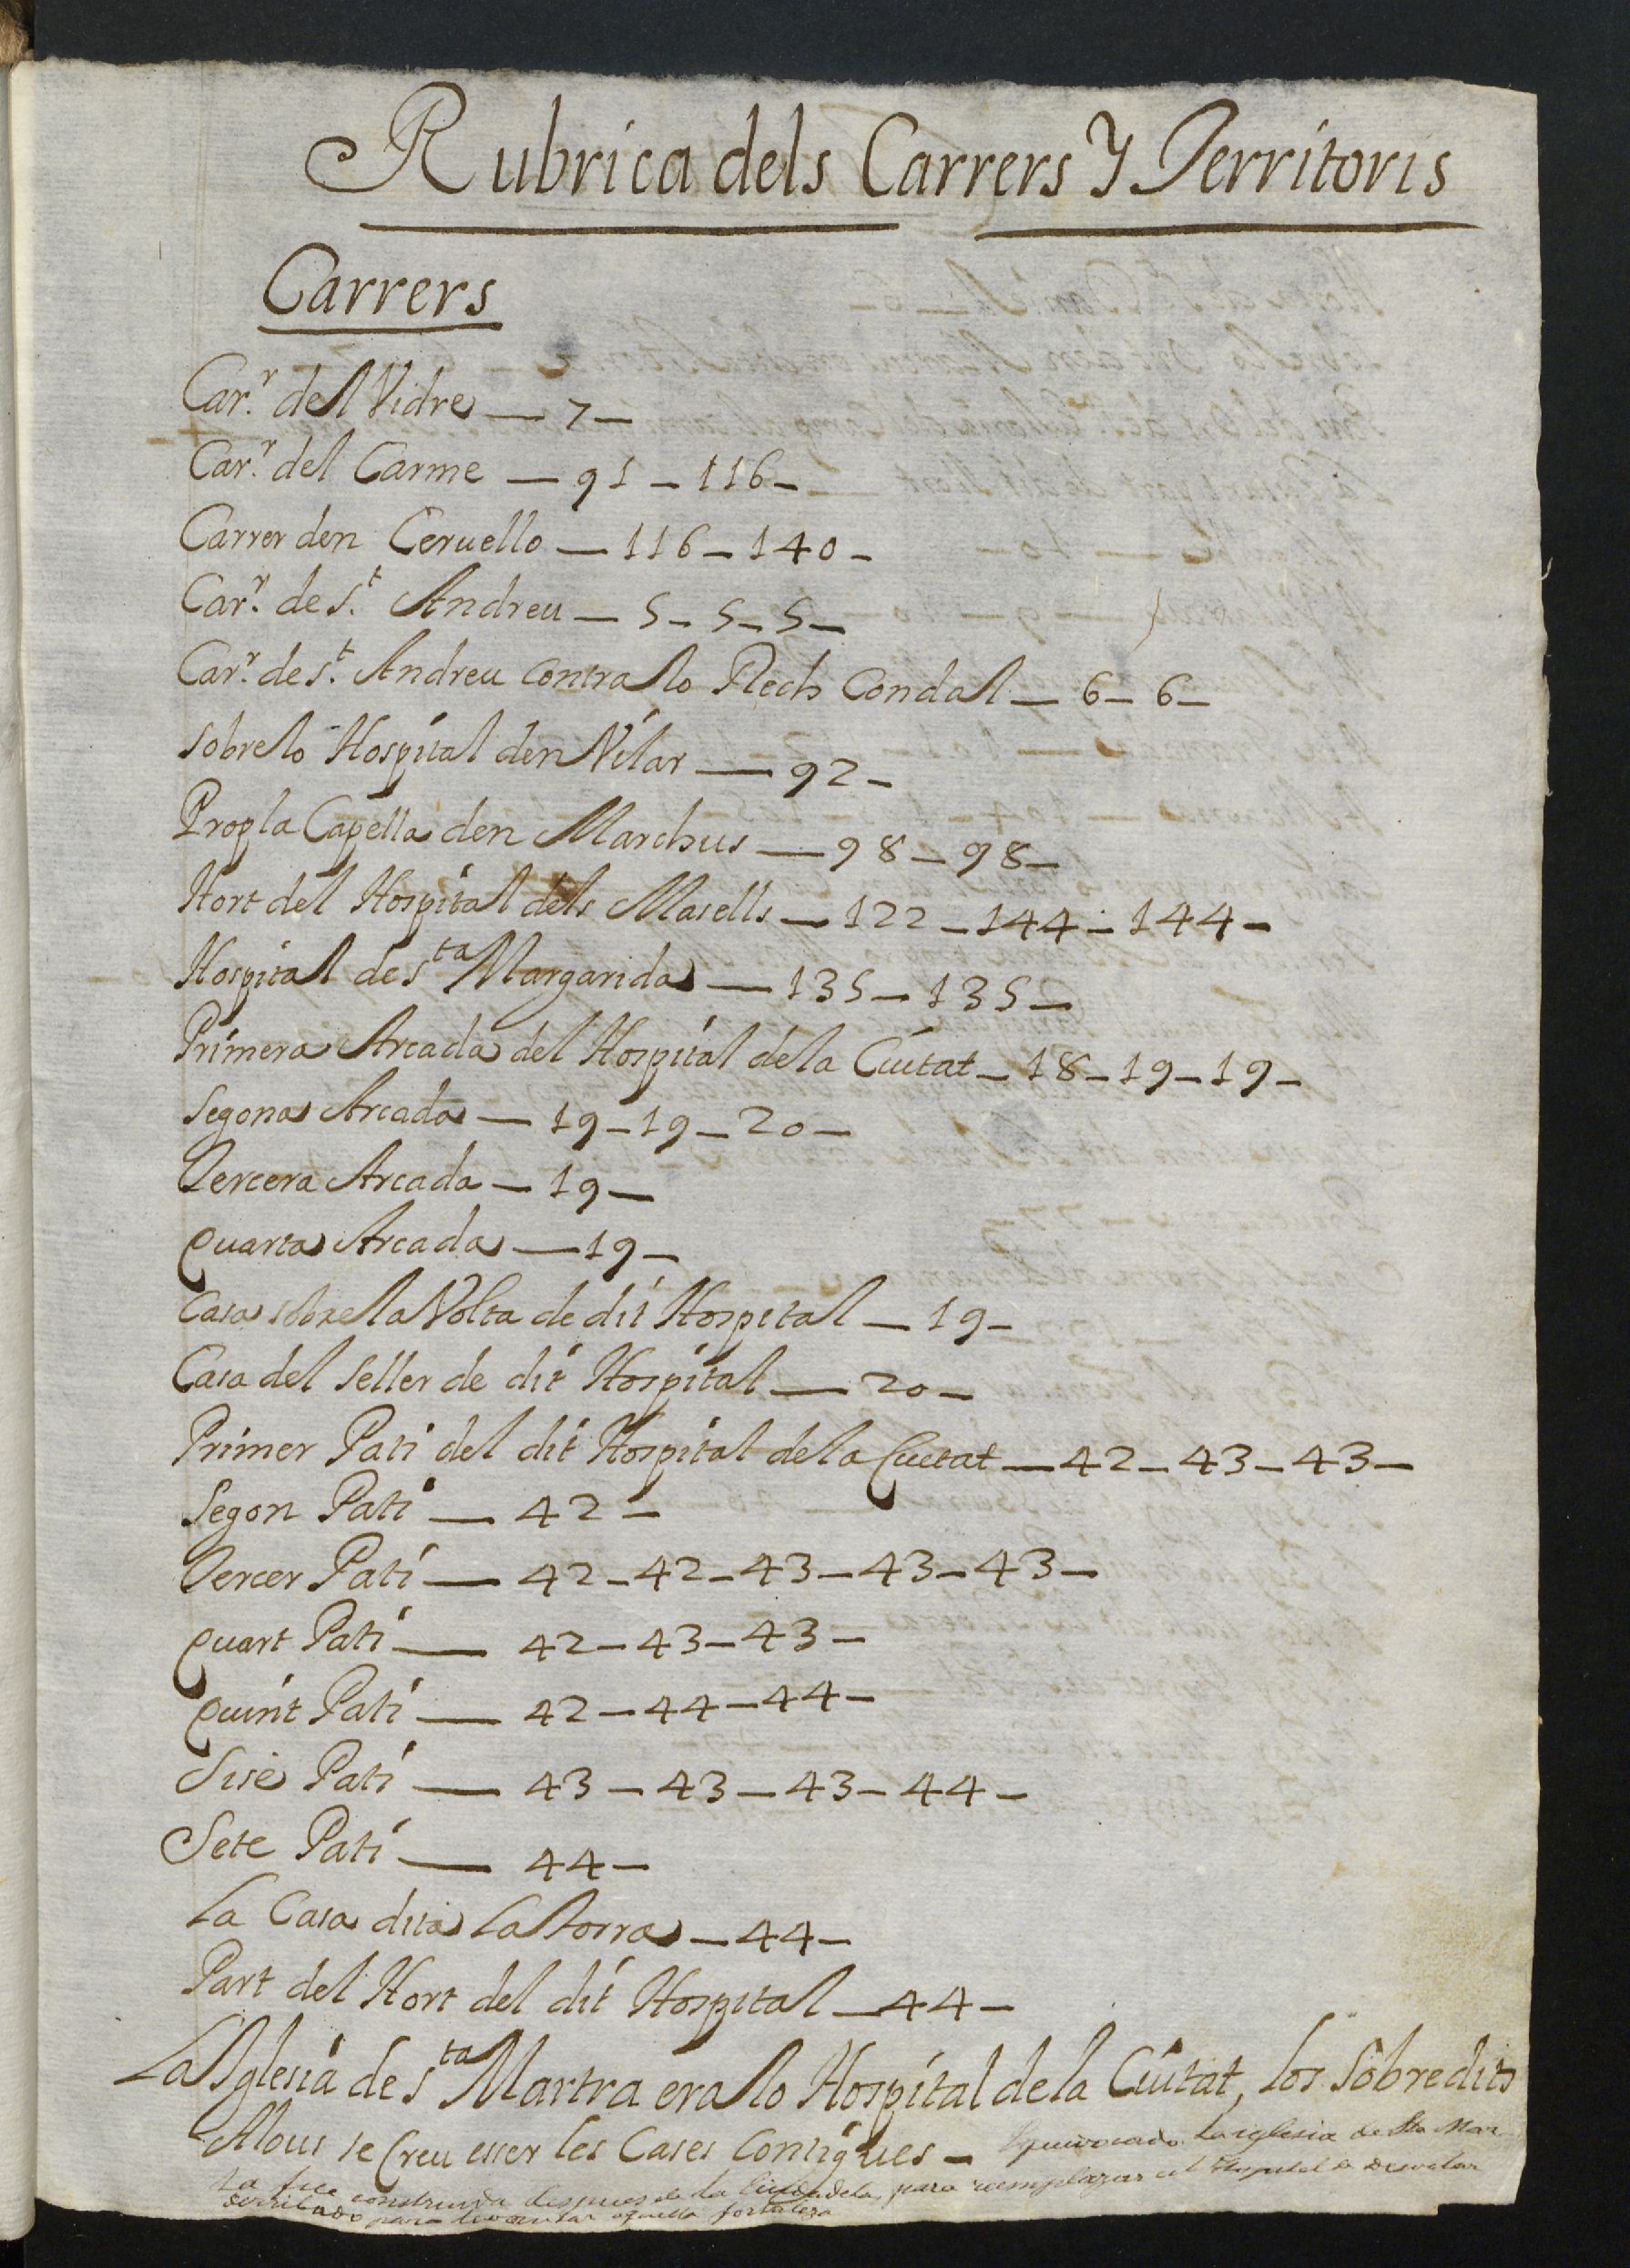 Rubrica dels Carrers Y Territoris
Carrers
Car.r del Vidre — 7 —
Car.r del Carme — 91 — 116 —
Carrer den Ceruello — 116 — 140 —
Car.r de S.t Andreu — 5 — 5 — 5 —
Car.r de s.t Andreu contra lo Rech Condal — 6 — 6 —
sobre lo Hospital den Vilar — 92 —
Prop la Capella den Marchus — 98 — 98 —
Hort del Hospital dels Masells — 122 — 144 — 144 —
Hospital de s.ta Margarida — 135 — 135 —
Primera Arcada del Hospital de la Ciutat — 18 — 19 — 19 —
Segona Arcada — 19 — 19 — 20 —
Tercera Arcada — 19 —
Quarta Arcada — 19 —
Casa sobre la Volta de dit Hospital — 19 —
Casa del seller de dit Hospital — 20 —
Primer Pati del dit Hospital de la Ciutat — 42 — 43 — 43 —
Segon Pati — 42 —
Tercer Pati — 42 — 42 — 43 — 43 — 43 —
Quart Pati — 42 — 43 — 43 —
Quint Pati — 42 — 44 — 44 —
Sisè Pati — 43 — 43 — 43 — 44 —
Sete Pati — 44 —
La Casa dita La Torra — 44 —
Part del Hort del dit Hospital — 44 —
La Iglesia de s.ta Martra era lo Hospital de la Ciutat, los sobredits
Alous se Creu esser les Cases Contigues — Equivocado La iglesia de Sta Mar
ta fue construida despues de la Ciudadela, para reemplazar al Hospital de
derribado para levantar aquella fortaleza